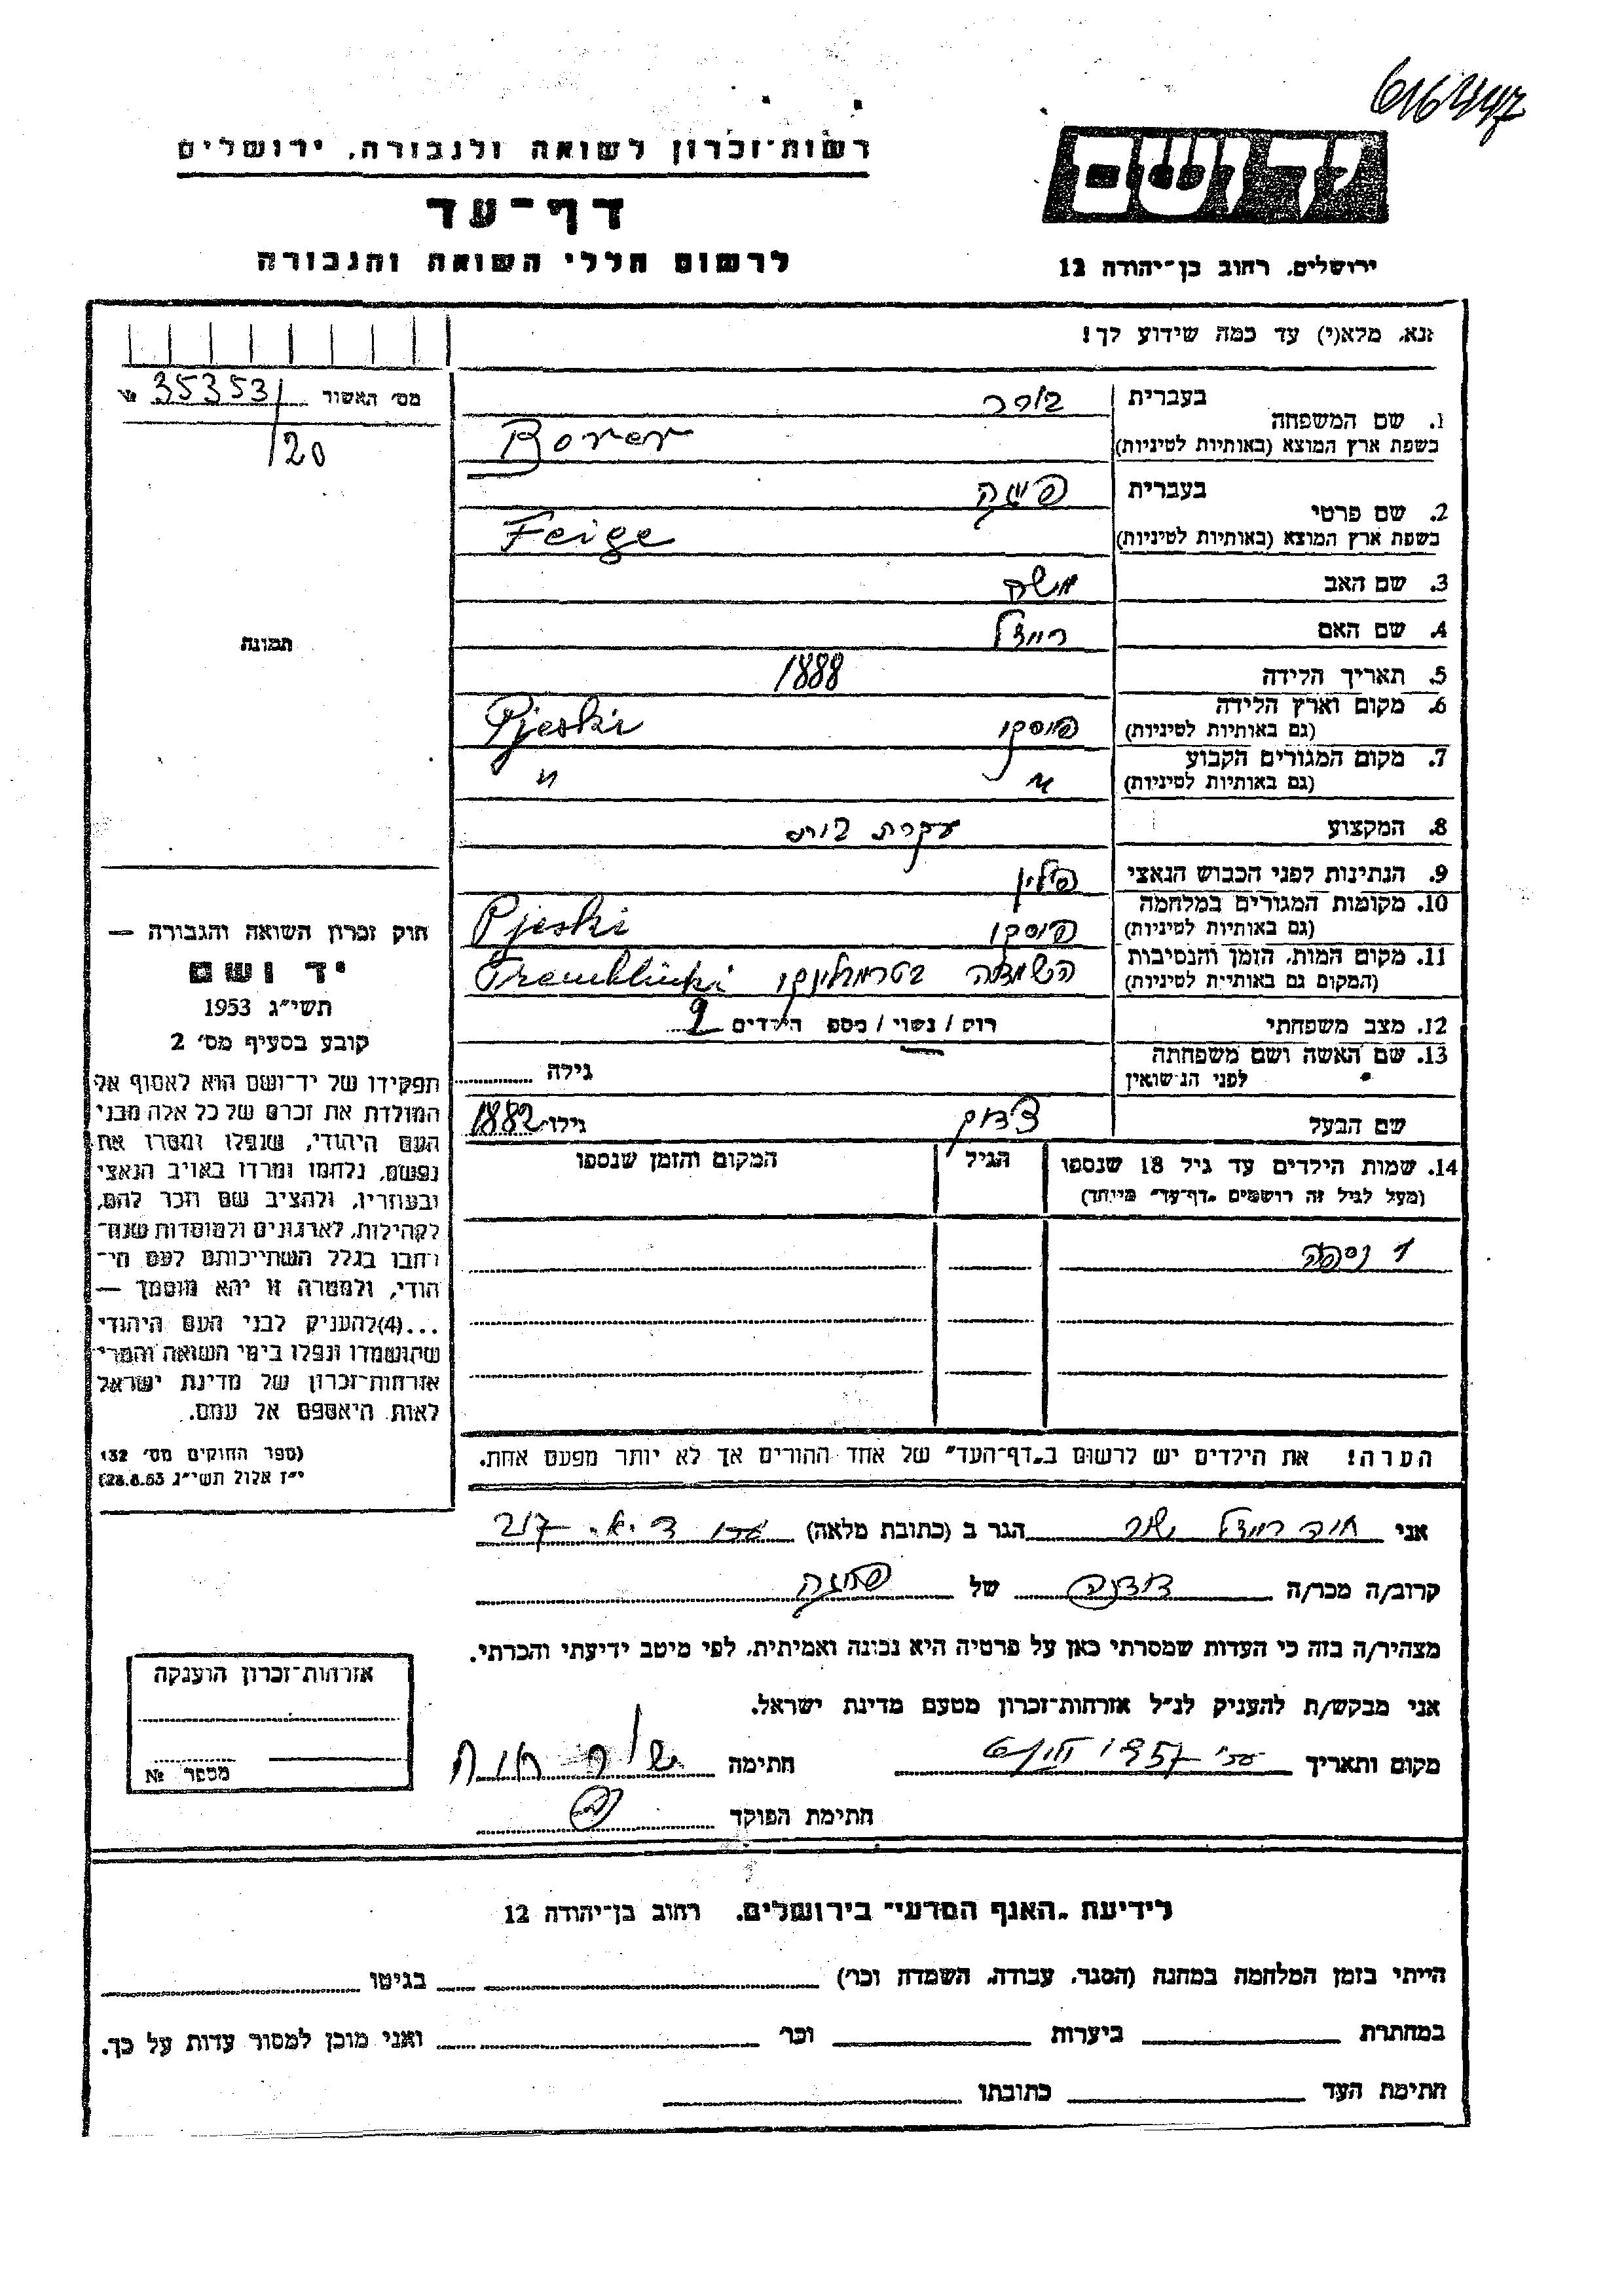 616447
רשות־זכרון לשואה ולגבורה, ירושלים
דף־עד
לרשום חללי השואה והגבורה
יד ושם
ירושלים, רחוב בן־יהודה 12
נא, מלא(י) עד כמה שידוע לך!
מס׳ האשור 35353/ №
/20
1. שם המשפחה
בעברית בורר
בשפת ארץ המוצא (באותיות לטיניות) Borer
2. שם פרטי
בעברית פייגה
בשפת ארץ המוצא (באותיות לטיניות) Feige
3. שם האב משה
4. שם האם ריזל
תמונה
5. תאריך הלידה 1888
6. מקום וארץ הלידה
(גם באותיות לטיניות) פיסקי Pjeski
7. מקום המגורים הקבוע
(גם באותיות לטיניות) " "
8. המקצוע עקרת בית
9. הנתינות לפני הכבוש הנאצי פולין
10. מקומות המגורים במלחמה
(גם באותיות לטיניות) פיסקי Pjeski
11. מקום המות, הזמן והנסיבות
(המקום גם באותיות לטיניות) השמדה בטרמבלינקי Tremblinki
12. מצב משפחתי רוק / נשוי / מספ הילדים 2
13. שם האשה ושם משפחתה
לפני הנישואין גילה
שם הבעל גילו 1882
14. שמות הילדים עד גיל 18 שנספו
(מעל לגיל זה רושמים „דף־עד" מיוחד)
הגיל
המקום והזמן שנספו
1 נספה
הערה! את הילדים יש לרשום ב„דף־העד" של אחד ההורים אך לא יותר מפעם אחת.
חוק זכרון השואה והגבורה —
יד ושם
תשי״ג 1953
קובע בסעיף מס׳ 2
תפקידו של יד־ושם הוא לאסוף אל
המולדת את זכרם של כל אלה מבני
העם היהודי, שנפלו ומסרו את
נפשם, נלחמו ומרדו באויב הנאצי
ובעוזריו, ולהציב שם וזכר להם,
לקהילות, לארגונים ולמוסדות שנח־
רבו בגלל השתייכותם לעם הי־
הודי, ולמטרה זו יהא מוסמך —
...(4) להעניק לבני העם היהודי
שהושמדו ונפלו בימי השואה והמרי
אזרחות־זכרון של מדינת ישראל
לאות היאספם אל עמם.
(ספר החוקים מס׳ 132
י״ז אלול תשי״ג 28.8.53)
אני חיה ריזל הגר ב (כתובת מלאה)
קרוב/ה מכר/ה דודנה של פייגה
מצהיר/ה בזה כי העדות שמסרתי כאן על פרטיה היא נכונה ואמיתית, לפי מיטב ידיעתי והכרתי.
אני מבקש/ת להעניק לנ״ל אזרחות־זכרון מטעם מדינת ישראל.
מקום ותאריך 1957 חתימה חיה
חתימת הפוקד
אזרחות־זכרון הוענקה
מספר №
לידיעת „האגף המדעי" בירושלים, רחוב בן־יהודה 12
הייתי בזמן המלחמה במחנה (הסגר, עבודה, השמדה וכו׳) בגיטו
במחתרת ביערות וכו׳ ואני מוכן למסור עדות על כך.
חתימת העד כתובתו